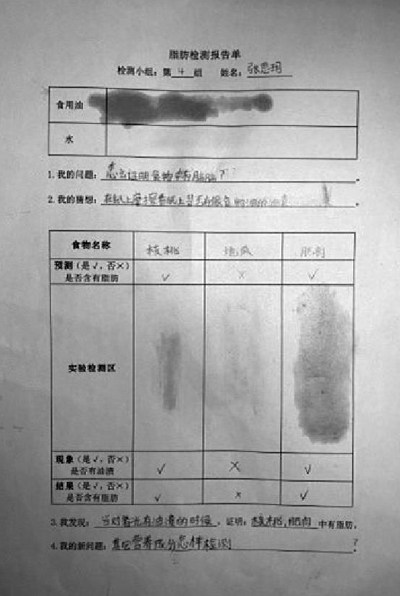 脂肪检测报告单
检测小组：第 4 组 姓名：张思玥
食用油
水
1.我的问题：怎么证明食物中有脂肪？
2.我的猜想：在纸上摩擦看纸上
食物名称 核桃 地瓜 肥肉
预测（是√，否×）
是否含有脂肪 √ × √
实验检测区
现象（是√，否×）
是否有油渍 √ × √
结果（是√，否×）
是否含有脂肪 √ × √
3.我发现：当对着光有油渍的时候，证明：核桃，肥肉中有脂肪。
4.我的新问题：其他营养成分怎样检测？